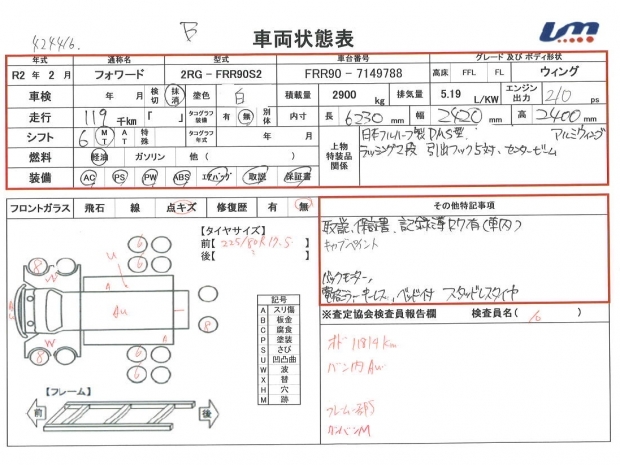 424416.
B
車両状態表
Um
年式 通称名 型式 車台番号 グレード及びボディ形状
R2 年 2 月 フォワード 2RG-FRR90S2 FRR90-7149788 高床 FFL FL ウィング
車検 年 月 検切 抹消 塗色 白 積載量 2900 kg 排気量 5.19 L/KW エンジン出力 210 ps
走行 119 千km 「 」 タコグラフ装備 有 無 別体 内寸 長 6230 mm 幅 2420 mm 高 2400 mm
シフト 6 MT AT 特殊 タコグラフ年式 上物特装品関係 日本フルハーフ製 アルミウィング
燃料 軽油 ガソリン 他 ( ) ラッシング2段 引出フック5対、センタービーム
装備 AC PS PW ABS エアバッグ 取説 保証書
フロントガラス 飛石 線 点キズ 修復歴 有 無 その他特記事項
【タイヤサイズ】
前【 225/80R17.5 】
後【 】
取説、保証書、記録簿
キャブペイント
バックモニター
ベッド付 スタッドレスタイヤ
6 6
8
U
A
W
Au
8
W
8
6 6
記号
A スリ傷
B 板金
C 腐食
P 塗装
S さび
U 凹凸曲
W 波
X 替
H 穴
M 跡
※査定協会検査員報告欄 検査員名( )
オド 11819km
バン内Aw
フレーム部S
カンバンM
【フレーム】
前 後